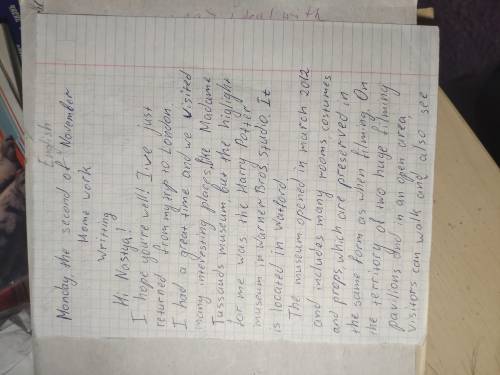 English
Monday, the second of November
Home work
writting
Hi Nastya!
I hope you're well! I've just
returned from my trip to London.
I had a great time and we visited
many interesting places, like Madame
Tussauds museum, but the higlight
for me was the Harry Potter
museum in Warner Bros. Studio. It
is located in Watford.
The museum opened in march 2012
and includes many rooms, costumes
and props, which are preserved in
the same form as when filming. On
the territory of two huge filming
pavilions and in an open area,
visitors can walk and also see